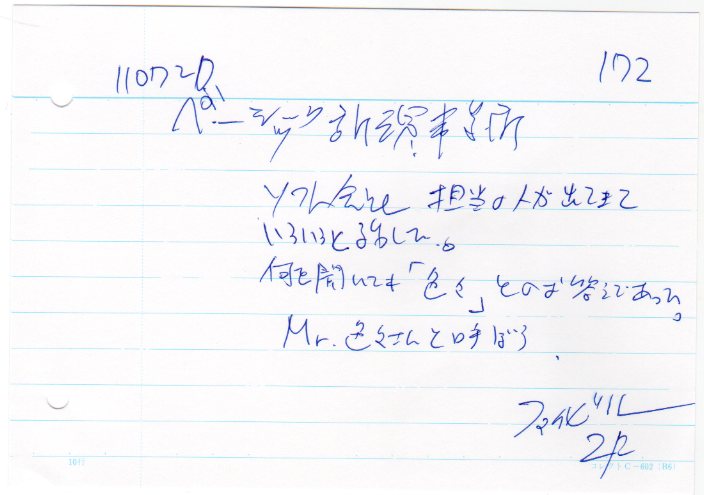 110720
172
ベーシック
ソフト会社 担当の人が出てきて
いろいろと話した。
何を聞いても「色々」とのお答えであった。
Mr.色々さんと呼ぼう.
2F
10行
コレクト C-602 (B6)